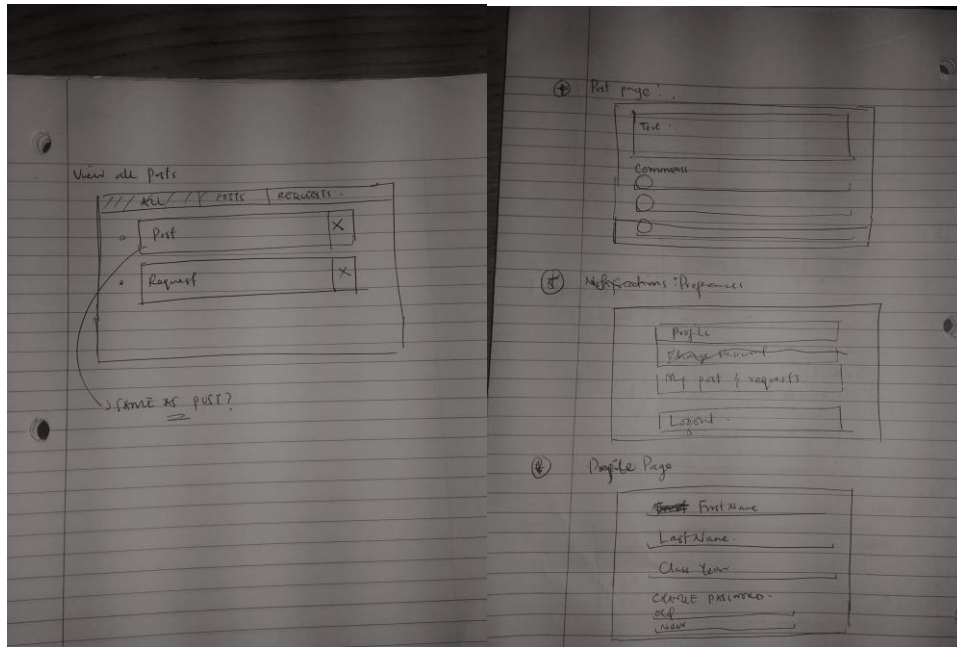 View all Posts
ALL POSTS REQUESTS.
Post X
Request X
SAME AS POST?
Post page:
Text.
Comments
Notifications: Preferences
Profile
Change Password
My post & requests
Logout
Profile Page
First Name
Last Name.
Class Year
CHANGE PASSWORD-
OLD
NEW